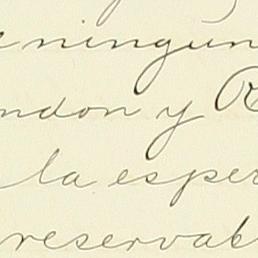 ningun
ndon y R
la esper
reservab